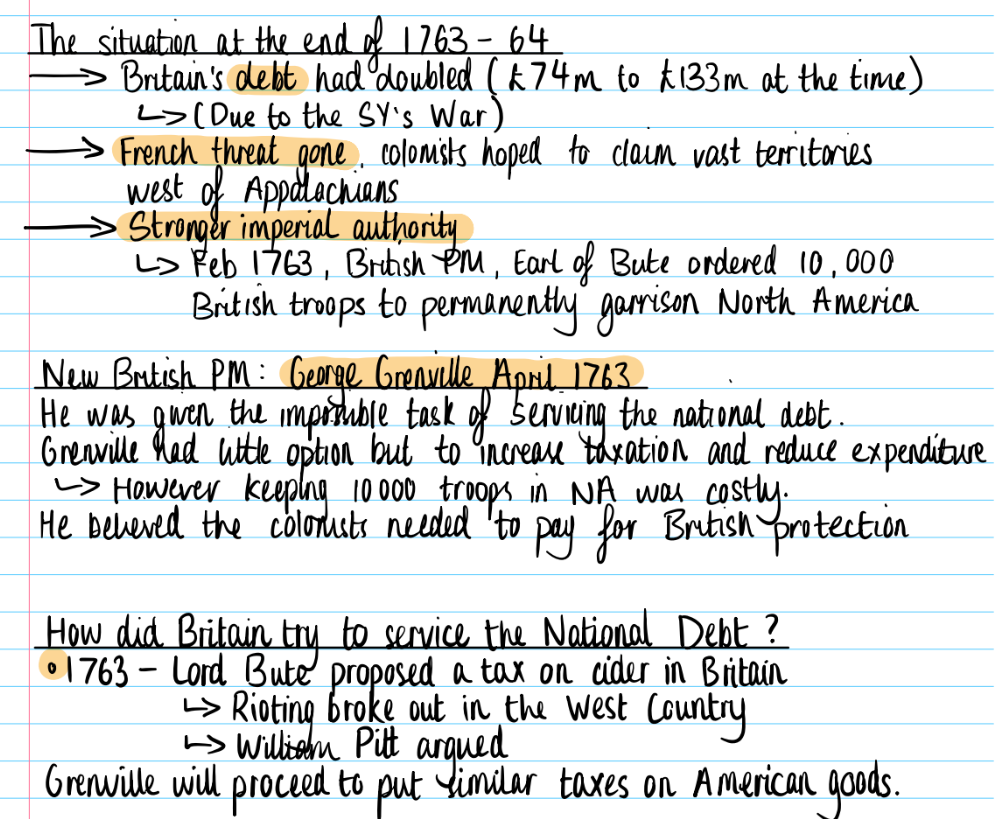 The situation at the end of 1763 - 64
→ Britain's debt had doubled (£74m to £133m at the time)
↳ (Due to the SY's War)
→ French threat gone, colonists hoped to claim vast territories
west of Appalachians
→ Stronger imperial authority
↳ Feb 1763, British PM, Earl of Bute ordered 10,000
British troops to permanently garrison North America
New British PM: George Grenville April 1763
He was given the impossible task of servicing the national debt.
Grenville had little option but to increase taxation and reduce expenditure
↳ However keeping 10000 troops in NA was costly.
He believed the colonists needed to pay for British protection
How did Britain try to service the National Debt?
• 1763 - Lord Bute proposed a tax on cider in Britain
↳ Rioting broke out in the West Country
↳ William Pitt argued
Grenville will proceed to put similar taxes on American goods.